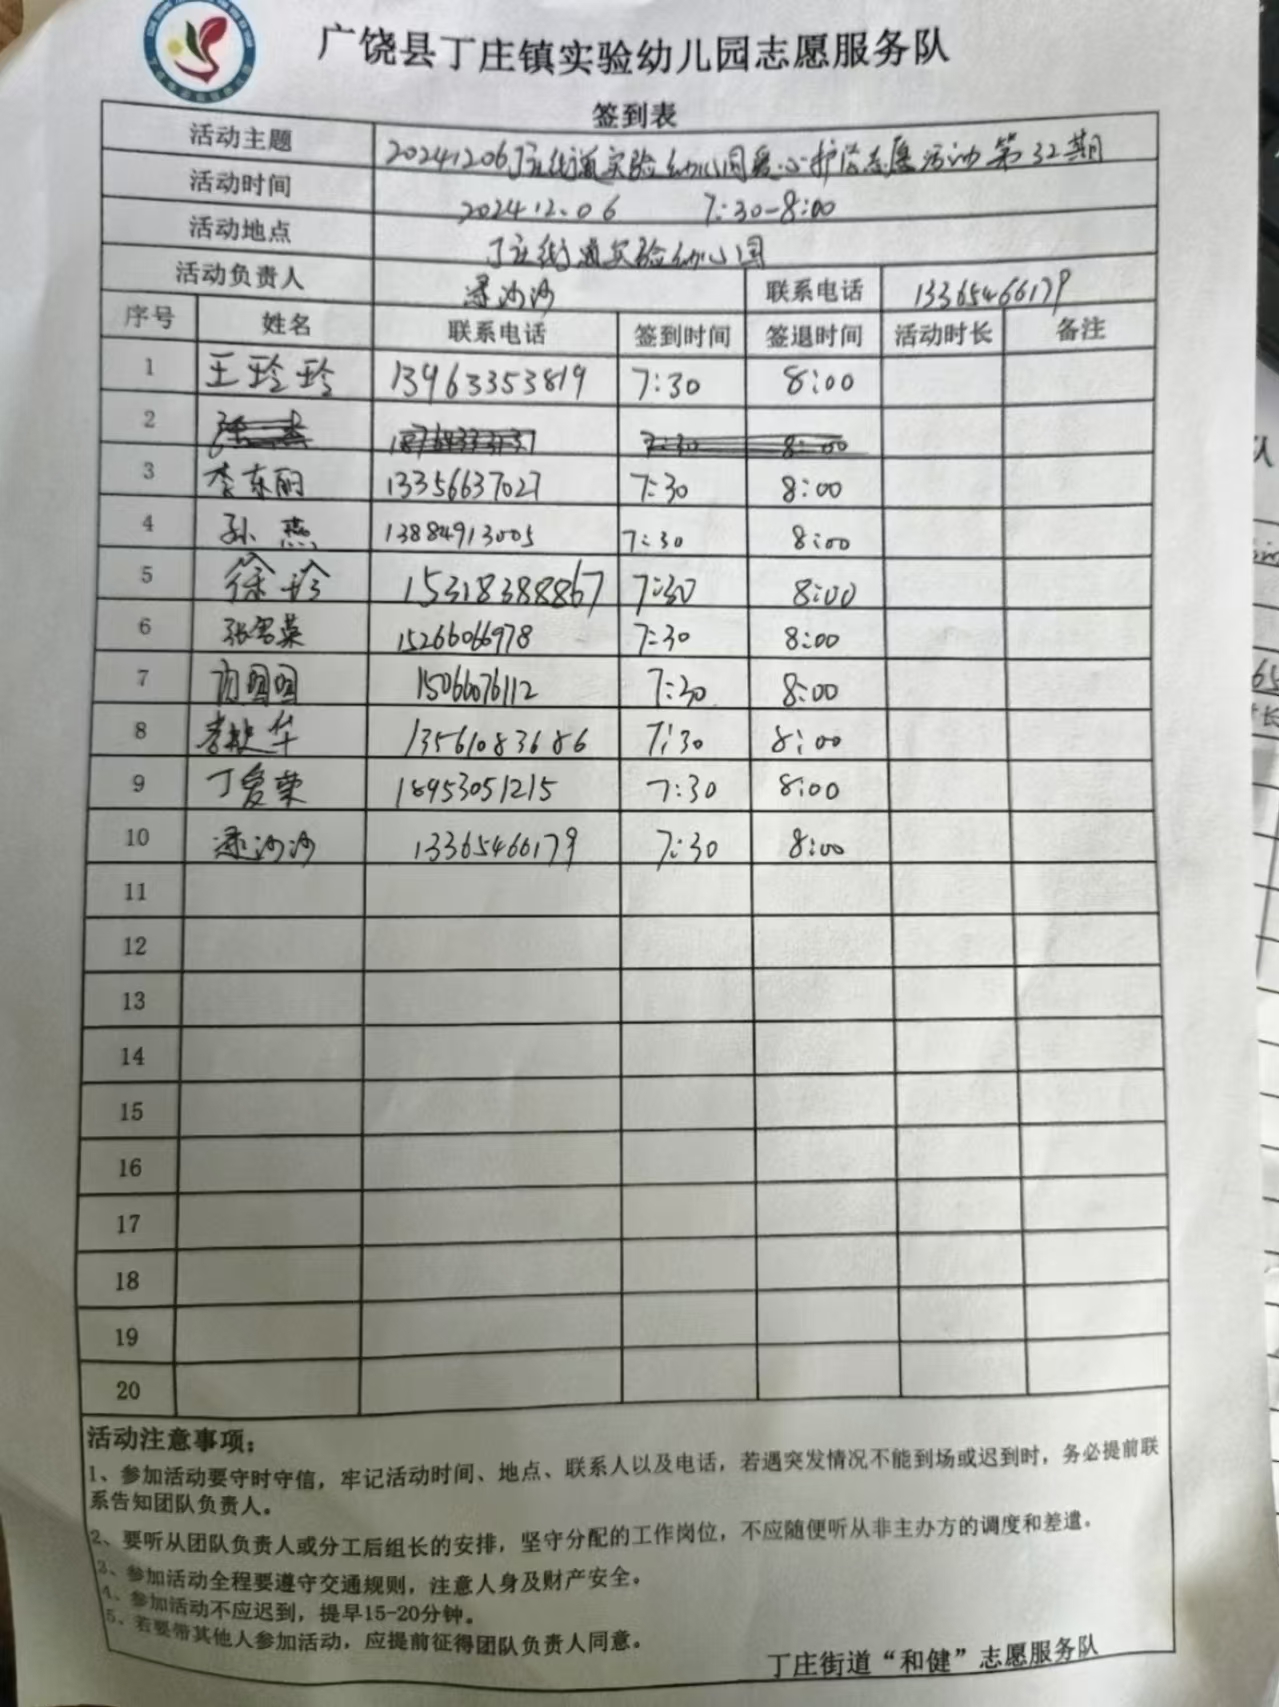 广饶县丁庄镇实验幼儿园志愿服务队
签到表
活动主题 20241206丁庄街道实验幼儿园爱心护学志愿活动第32期
活动时间 2024.12.06 7:30-8:00
活动地点 丁庄街道实验幼儿园
活动负责人 沙沙 联系电话 13365466179
序号 姓名 联系电话 签到时间 签退时间 活动时长 备注
1 王玲玲 13963353819 7:30 8:00
2 7:30 8:00
3 李东丽 13356637027 7:30 8:00
4 孙燕 13884913005 7:30 8:00
5 徐珍 15318388867 7:30 8:00
6 张雪菜 15266066978 7:30 8:00
7 15066076112 7:30 8:00
8 李 华 13561083686 7:30 8:00
9 丁爱荣 18953051215 7:30 8:00
10 沙沙 13365466179 7:30 8:00
11
12
13
14
15
16
17
18
19
20
活动注意事项：
1、参加活动要守时守信，牢记活动时间、地点、联系人以及电话，若遇突发情况不能到场或迟到时，务必提前联
系告知团队负责人。
2、要听从团队负责人或分工后组长的安排，坚守分配的工作岗位，不应随便听从非主办方的调度和差遣。
3、参加活动全程要遵守交通规则，注意人身及财产安全。
4、参加活动不应迟到，提早15-20分钟。
5、若要带其他人参加活动，应提前征得团队负责人同意。
丁庄街道“和健”志愿服务队